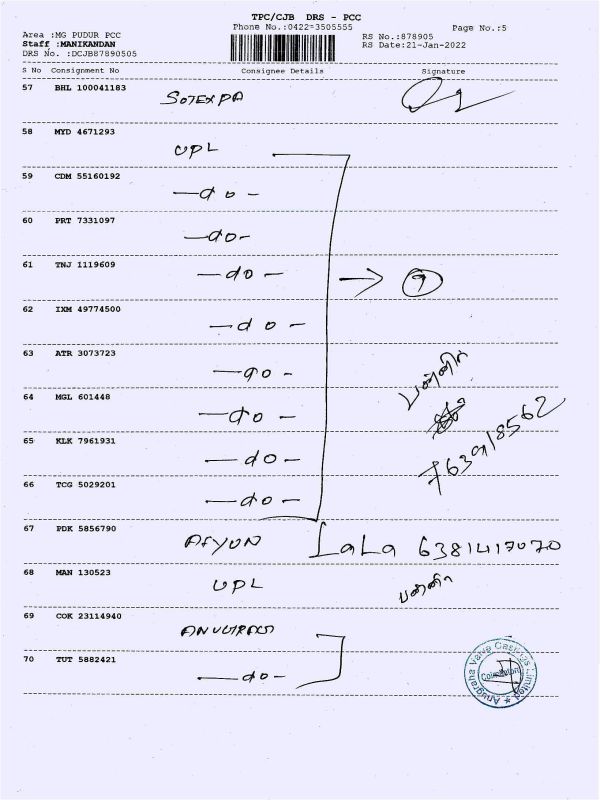 TPC/CJB DRS - PCC
Phone No.:0422-3505555
Page No.:5
Area :MG PUDUR PCC
RS No.:878905
Staff :MANIKANDAN
RS Date:21-Jan-2022
DRS No. :DCJB87890505
S No Consignment No Consignee Details Signature
57 BHL 100041183 SOTEXPA
58 MYD 4671293 UPL
59 CDM 55160192 -do-
60 PRT 7331097 -do-
61 TNJ 1119609 -do- → 9
62 IXM 49774500 -do-
63 ATR 3073723 -do-
64 MGL 601448 -do-
65 KLK 7961931 -do- 763918562
66 TCG 5029201 -do-
67 PDK 5856790 AFYON LaLa 6381417070
68 MAN 130523 UPL
69 COK 23114940
70 TUT 5882421 -do-
Anugraha Valve Castings Limited
Coimbatore